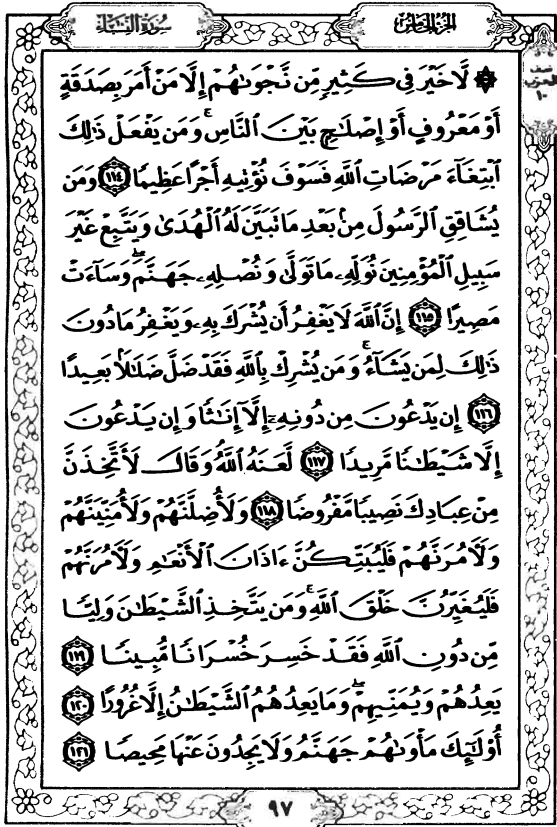 سورة النساء
الجزء الخامس
نصف
الحزب
١٠
۞ لَّا خَيْرَ فِي كَثِيرٍ مِّن نَّجْوَىٰهُمْ إِلَّا مَنْ أَمَرَ بِصَدَقَةٍ
أَوْ مَعْرُوفٍ أَوْ إِصْلَٰحٍ بَيْنَ النَّاسِ ۚ وَمَن يَفْعَلْ ذَٰلِكَ
ابْتِغَاءَ مَرْضَاتِ اللَّهِ فَسَوْفَ نُؤْتِيهِ أَجْرًا عَظِيمًا ١١٤ وَمَن
يُشَاقِقِ الرَّسُولَ مِنۢ بَعْدِ مَا تَبَيَّنَ لَهُ الْهُدَىٰ وَيَتَّبِعْ غَيْرَ
سَبِيلِ الْمُؤْمِنِينَ نُوَلِّهِۦ مَا تَوَلَّىٰ وَنُصْلِهِۦ جَهَنَّمَ ۖ وَسَاءَتْ
مَصِيرًا ١١٥ إِنَّ اللَّهَ لَا يَغْفِرُ أَن يُشْرَكَ بِهِۦ وَيَغْفِرُ مَا دُونَ
ذَٰلِكَ لِمَن يَشَاءُ ۚ وَمَن يُشْرِكْ بِاللَّهِ فَقَدْ ضَلَّ ضَلَٰلًۢا بَعِيدًا
١١٦ إِن يَدْعُونَ مِن دُونِهِۦ إِلَّا إِنَٰثًا وَإِن يَدْعُونَ
إِلَّا شَيْطَٰنًا مَّرِيدًا ١١٧ لَّعَنَهُ اللَّهُ وَقَالَ لَأَتَّخِذَنَّ
مِنْ عِبَادِكَ نَصِيبًا مَّفْرُوضًا ١١٨ وَلَأُضِلَّنَّهُمْ وَلَأُمَنِّيَنَّهُمْ
وَلَآمُرَنَّهُمْ فَلَيُبَتِّكُنَّ ءَاذَانَ الْأَنْعَٰمِ وَلَآمُرَنَّهُمْ
فَلَيُغَيِّرُنَّ خَلْقَ اللَّهِ ۚ وَمَن يَتَّخِذِ الشَّيْطَٰنَ وَلِيًّا
مِّن دُونِ اللَّهِ فَقَدْ خَسِرَ خُسْرَانًا مُّبِينًا ١١٩
يَعِدُهُمْ وَيُمَنِّيهِمْ ۖ وَمَا يَعِدُهُمُ الشَّيْطَٰنُ إِلَّا غُرُورًا ١٢٠
أُولَٰئِكَ مَأْوَىٰهُمْ جَهَنَّمُ وَلَا يَجِدُونَ عَنْهَا مَحِيصًا ١٢١
٩٧